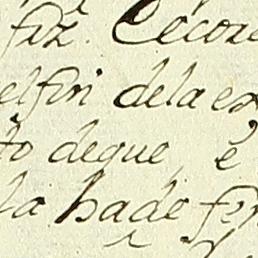 fiz. Cecore
elfin dela ex
to deque, è
la hade